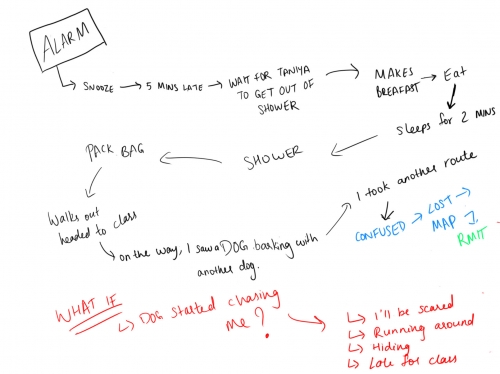 ALARM
SNOOZE → 5 MINS LATE → WAIT FOR TANIYA
TO GET OUT OF
SHOWER
MAKES
BREAFAST → Eat
sleeps for 2 MINS
SHOWER
PACK BAG
Walks out
headed to class
on the way, I saw a DOG barking with
another dog.
I took another route
CONFUSED → LOST →
MAP
RMIT
WHAT IF
DOG started chasing
me?
I'll be scared
Running around
Hiding
Late for class